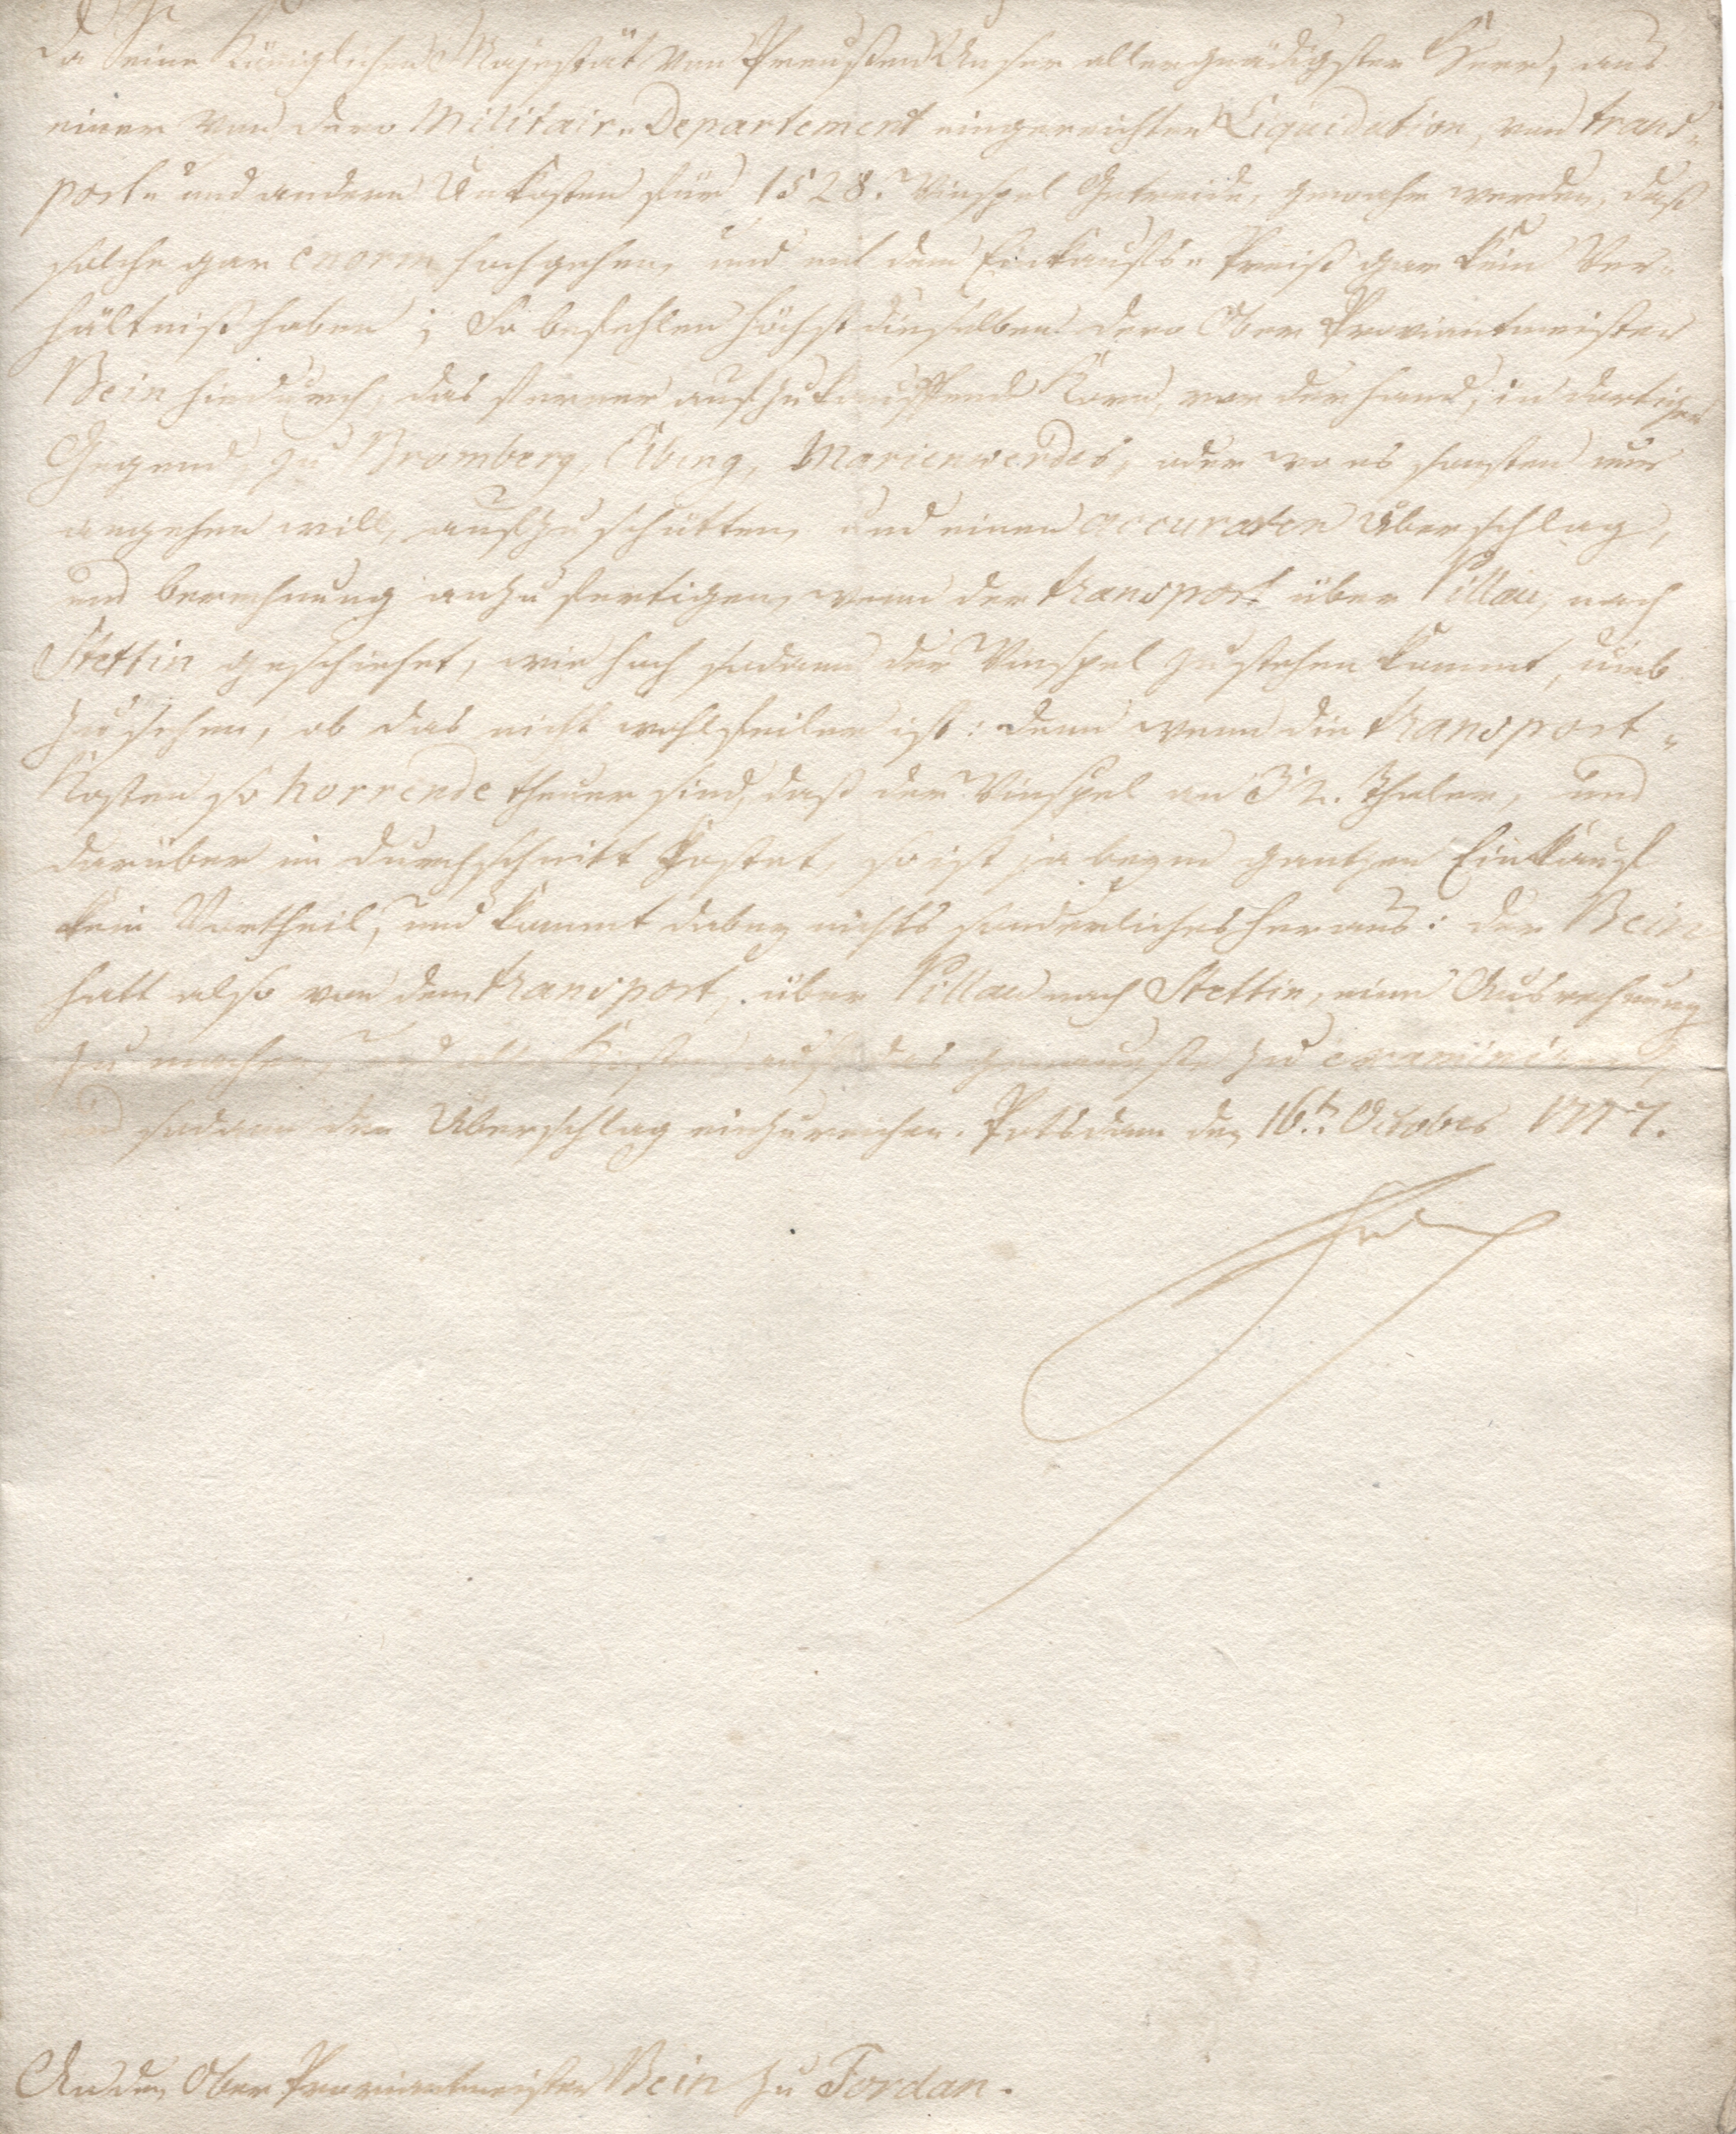 Da Seine Königlichen Majestät von Preußen Unser allergnädigster Herr, aus
einer von dero Militair-Departement eingereichten Liquidation, von trans-
port- und andern Unkosten für 1528. Winspel Getreide, gewahr werden, daß
solche gar enorm hochgehen, und mit dem Einkaufs-Preiß gar kein Ver-
hältniß haben; So befehlen Höchstdieselben dero Ober Proviantmeister
Bein hiedurch, das ferner aufzukauffende Korn, vor der Hand, in dortiger
Gegend zu Bromberg, Elbing, Marienwerder, oder wo es sonsten nur
angehen will, aufzuschütten, und einen accuraten Überschlag,
und berechnung anzufertigen, wenn der transport über Pillau, nach
Stettin geschiehet, wie hoch sodann der Winspel zu stehen kommt, umb
zu sehen, ob das nicht wohlfeiler ist: denn wenn die transport-
Kosten so horrende theuer sind, daß der Winspel an 32. Thaler, und
darüber im durchschnitt kostet, so ist ja beym gantzen Einkauf
kein Vortheil, und kommt dabey nichts sonderliches heraus: der Bein
hatt also von dem transport, über Pillau nach Stettin, eine Ausrechnung
zu machen, und alle Kosten aufs das genaueste zu examiniren,
und sodann den Überschlag einzureichen. Potsdam den 16.ten October 1777.
Fch
An den Ober Proviantmeister Bein zu Fordan.